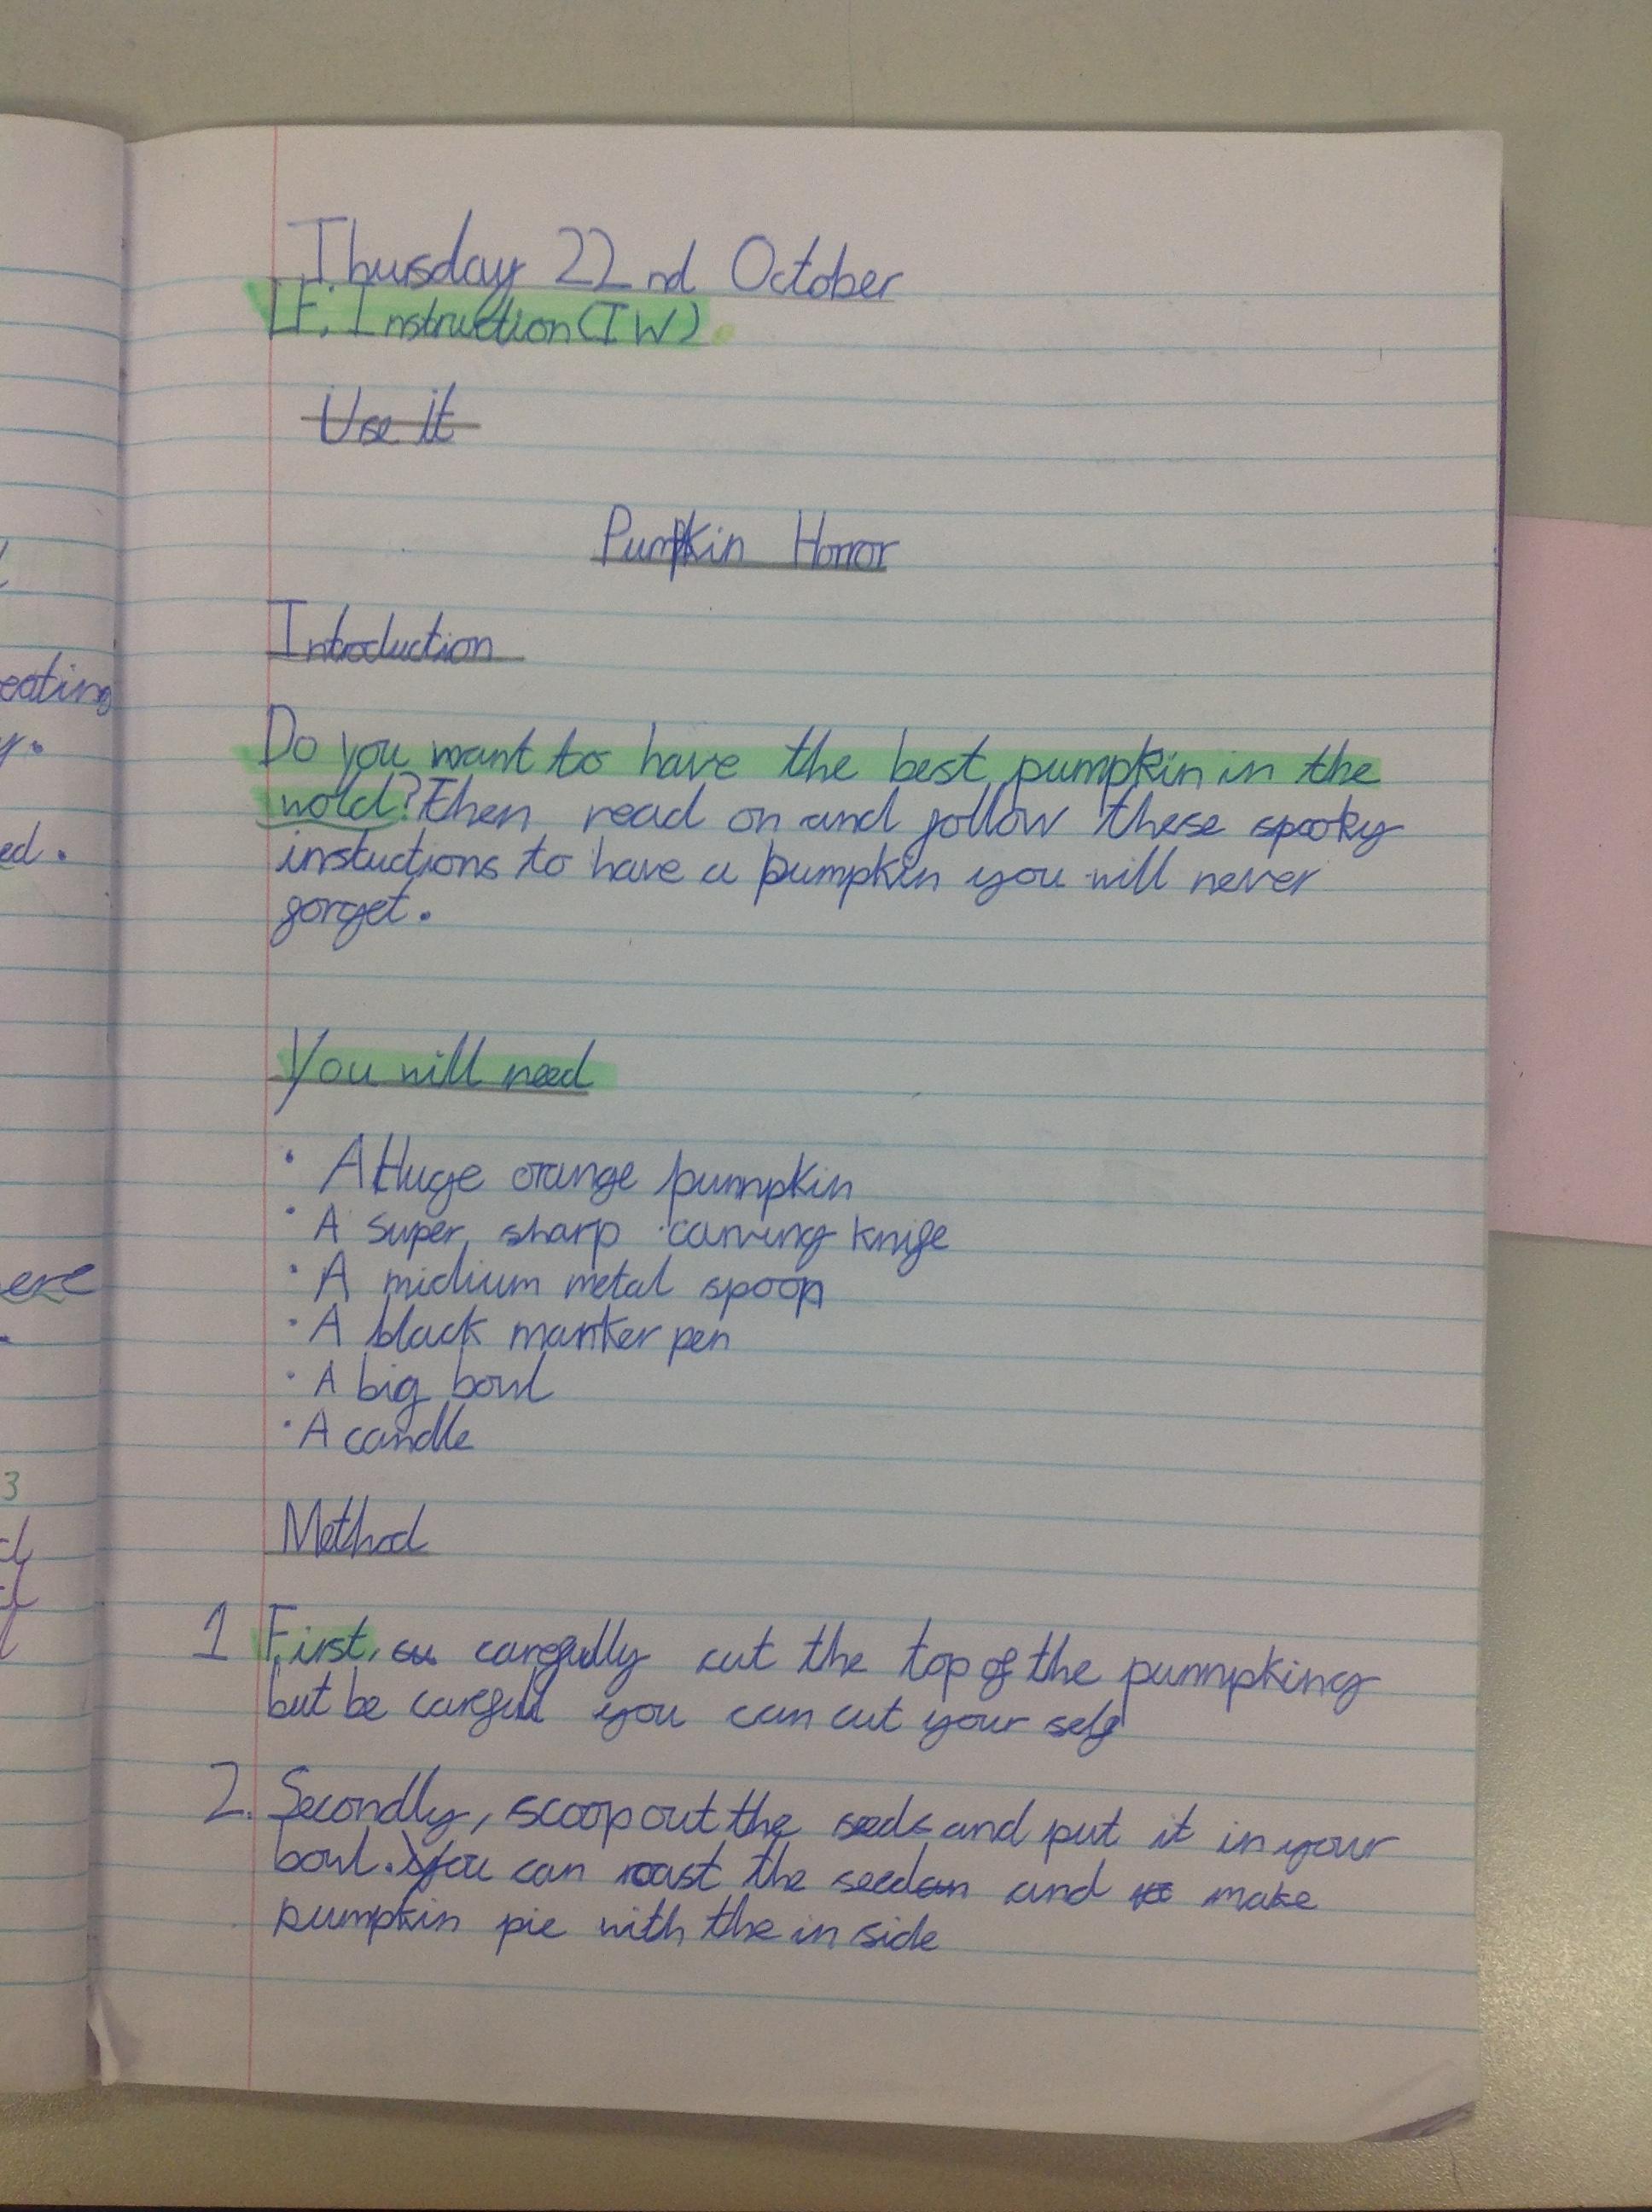 Thusday 22nd October
LF: Instruction (IW)
Use it
Pumpkin Horror
Introduction
Do you want to have the best pumpkin in the
wold? Then read on and follow these spooky
instuctions to have a pumpkin you will never
forget.
You will need
• A Huge orange pumpkin
• A super sharp carving knife
• A midium metal spoon
• A black marker pen
• A big bowl
• A candle
Method
1 First, carefully cut the top of the pumpking
but be carefull you can cut your self
2. Secondly, scoop out the seeds and put it in your
bowl. You can roast the seed and make
pumpkin pie with the in side
eating
y.
ed.
ere
3